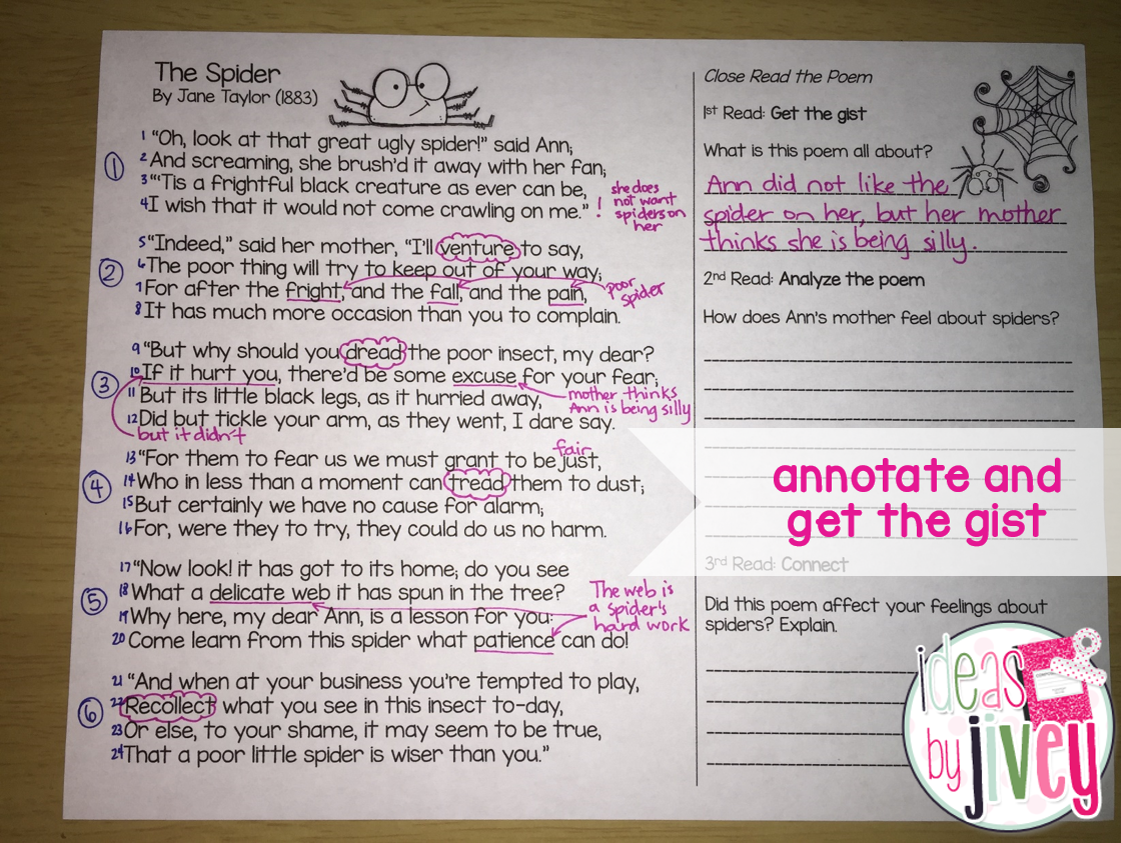 The Spider
By Jane Taylor (1883)
1 "Oh, look at that great ugly spider!" said Ann;
① 2 And screaming, she brush'd it away with her fan;
3 "'Tis a frightful black creature as ever can be,
4 I wish that it would not come crawling on me." !
she does
not want
spiders on
her
5 "Indeed," said her mother, "I'll venture to say,
② 6 The poor thing will try to keep out of your way;
7 For after the fright, and the fall, and the pain,
poor
spider
8 It has much more occasion than you to complain.
9 "But why should you dread the poor insect, my dear?
③ 10 If it hurt you, there'd be some excuse for your fear;
11 But its little black legs, as it hurried away,
mother thinks
Ann is being silly
12 Did but tickle your arm, as they went, I dare say.
but it didn't
fair
13 "For them to fear us we must grant to be just,
④ 14 Who in less than a moment can tread them to dust;
15 But certainly we have no cause for alarm;
16 For, were they to try, they could do us no harm.
17 "Now look! it has got to its home; do you see
⑤ 18 What a delicate web it has spun in the tree?
19 Why here, my dear Ann, is a lesson for you:
20 Come learn from this spider what patience can do!
The web is
a spider's
hard work
21 "And when at your business you're tempted to play,
⑥ 22 Recollect what you see in this insect to-day,
23 Or else, to your shame, it may seem to be true,
24 That a poor little spider is wiser than you."
Close Read the Poem
1st Read: Get the gist
What is this poem all about?
Ann did not like the
spider on her, but her mother
thinks she is being silly.
2nd Read: Analyze the poem
How does Ann's mother feel about spiders?
annotate and
get the gist
3rd Read: Connect
Did this poem affect your feelings about
spiders? Explain.
ideas
by jivey